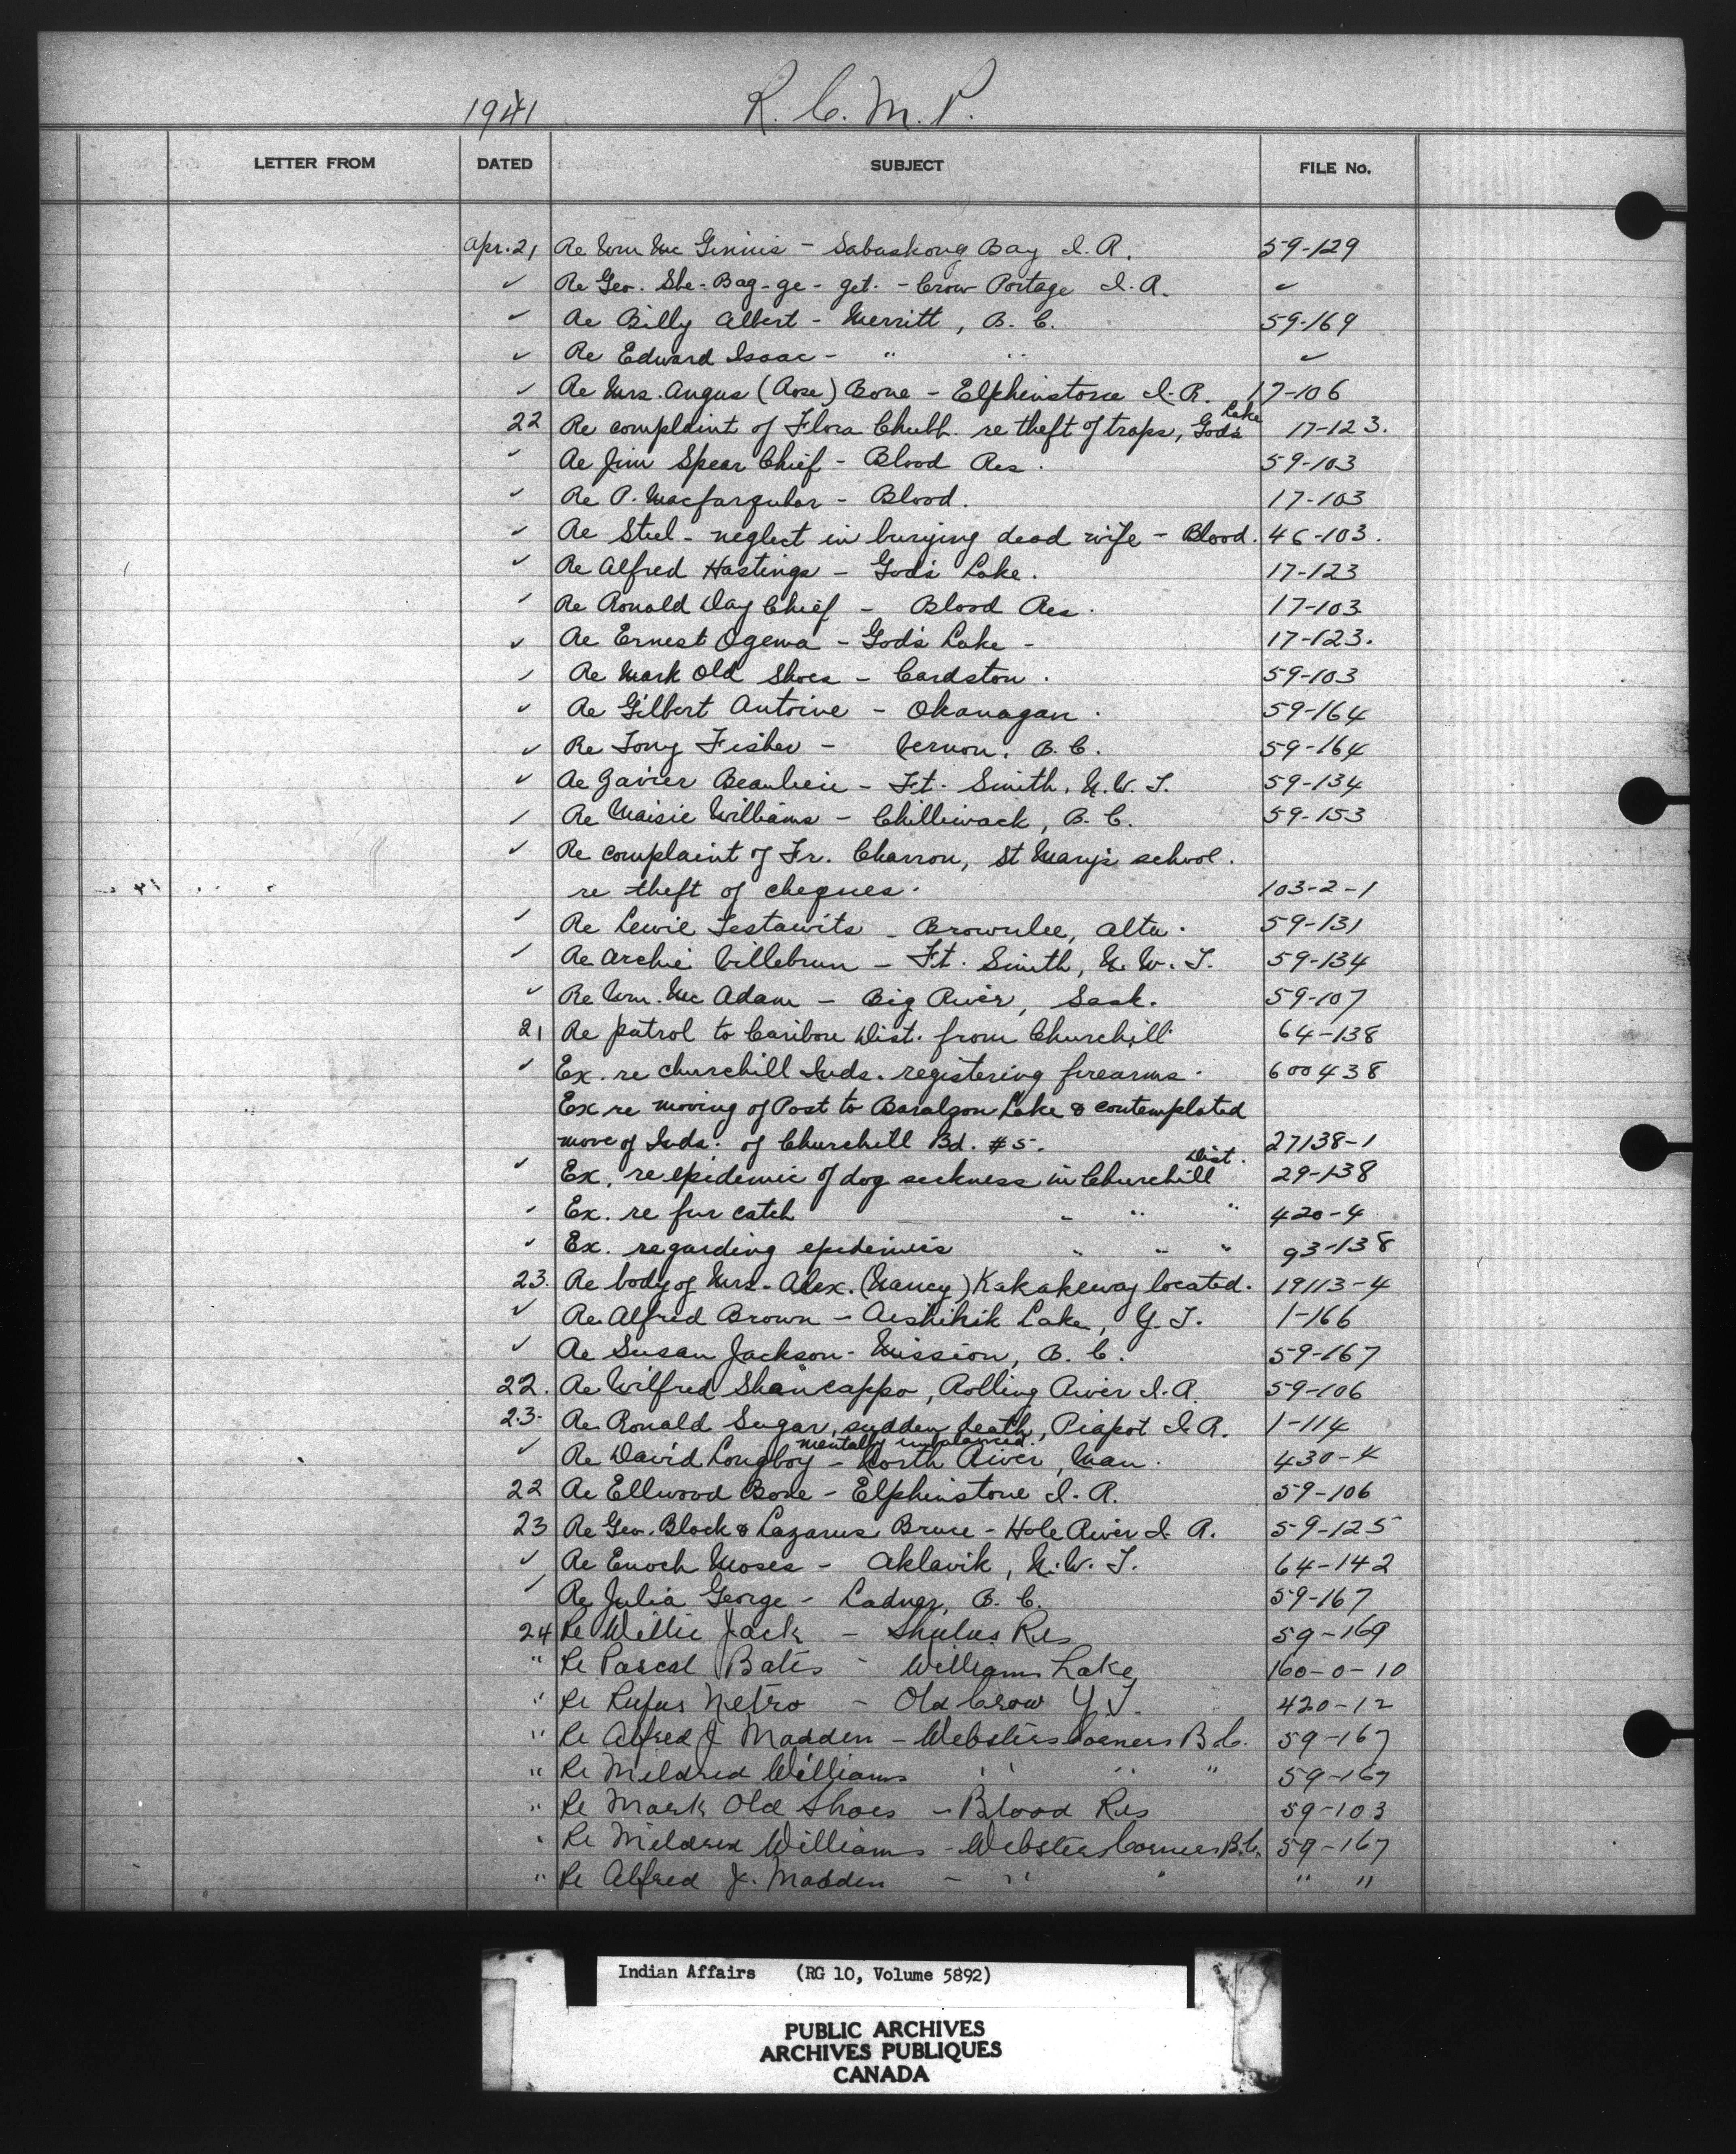 1941 R. C. M. P.
LETTER FROM DATED SUBJECT FILE No.
Apr. 21 Re Wm Mc Ginnis - Sabaskong Bay I. R. 59-129
✓ Re Geo. She-Bag-ge-get. - Crow Portage I. R. ✓
✓ Re Billy Albert - Merritt, B. C. 59-169
✓ Re Edward Isaac - " " ✓
✓ Re Mrs. Angus (Rose) Bone - Elphinstone I. R. 17-106
22 Re complaint of Flora Chubb re theft of traps, God's Lake 17-123.
✓ Re Jim Spear Chief - Blood Res. 59-103
✓ Re P. Macfarquhar - Blood. 17-103
✓ Re Steel - neglect in burying dead wife - Blood. 46-103.
✓ Re Alfred Hastings - God's Lake. 17-123
✓ Re Ronald Day Chief - Blood Res. 17-103
✓ Re Ernest Ogema - God's Lake - 17-123.
✓ Re Mark Old Shoes - Cardston. 59-103
✓ Re Gilbert Antoine - Okanagan. 59-164
✓ Re Tony Fisher - Vernon, B. C. 59-164
✓ Re Zavier Beaulieu - Ft. Smith, N. W. T. 59-134
✓ Re Maisie Williams - Chilliwack, B. C. 59-153
✓ Re complaint of Fr. Charron, St Mary's school.
re theft of cheques. 103-2-1
✓ Re Lewie Testawits - Brownlee, Alta. 59-131
✓ Re Archie Villebrun - Ft. Smith, N. W. T. 59-134
✓ Re Wm. Mc Adam - Big River, Sask. 59-107
21 Re patrol to Caribou Dist. from Churchill 64-138
✓ Ex. re Churchill Inds. registering firearms. 600438
Ex re moving of Post to Baralzon Lake & contemplated
move of Inds. of Churchill Bd. #5. 27138-1
✓ Ex. re epidemic of dog sickness in Churchill Dist. 29-138
✓ Ex. re fur catch " " " 420-4
✓ Ex. regarding epidemics " " " 93-138
23. Re body of Mrs. Alex. (Nancy) Kakakeway located. 19113-4
✓ Re Alfred Brown - Aishihik Lake, Y. T. 1-166
✓ Re Susan Jackson - Mission, B. C. 59-167
22. Re Wilfred Shancappo, Rolling River I. R. 59-106
23. Re Ronald Sugar, sudden death, Piapot I. R. 1-114
mentally unbalanced.
✓ Re David Longboy - North River, Man. 430-4
22 Re Ellwood Bone - Elphinstone I. R. 59-106
23 Re Geo. Block & Lazarus Bruce - Hole River I. R. 59-125
✓ Re Enoch Moses - Aklavik, N. W. T. 64-142
✓ Re Julia George - Ladner, B. C. 59-167
24 Re Willie Jack - Shulus Res 59-169
" Re Pascal Bates - Williams Lake 160-0-10
" Re Rufus Netro - Old Crow Y T. 420-12
" Re Alfred J Madden - Websters Corners B.C. 59-167
" Re Mildred Williams " " " 59-167
" Re Mark Old Shoes - Blood Res 59-103
" Re Mildred Williams - Websters Corners B.C. 59-167
" Re Alfred J. Madden - " " " "
Indian Affairs (RG 10, Volume 5892)
PUBLIC ARCHIVES
ARCHIVES PUBLIQUES
CANADA